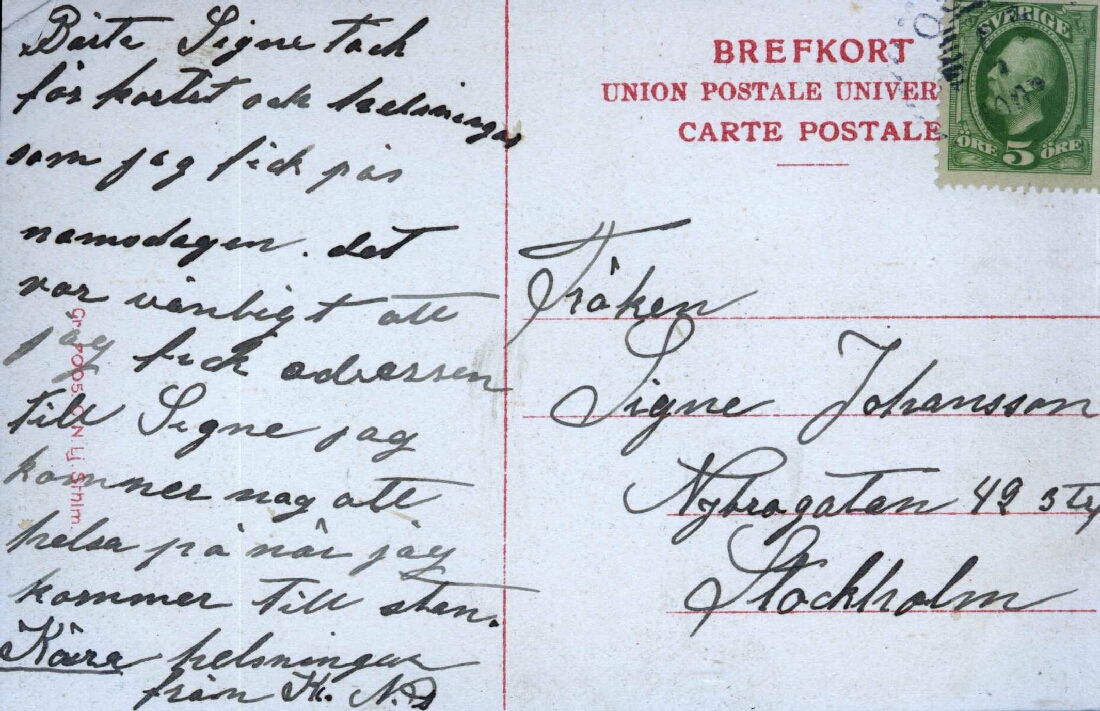 Bästa Signe tack
för kortet och helsningar
som jag fick på
namsdagen. det
var vänligt att
jag fick adressen
till Signe jag
kommer nog att
helsa på når jag
kommer till stan.
Kära helsningar
från K. N.
BREFKORT
UNION POSTALE UNIVER
CARTE POSTALE
SVERIGE
ÖRE 5 ÖRE
Fröken
Signe Johansson
Nybrogatan 42 3 tr
Stockholm